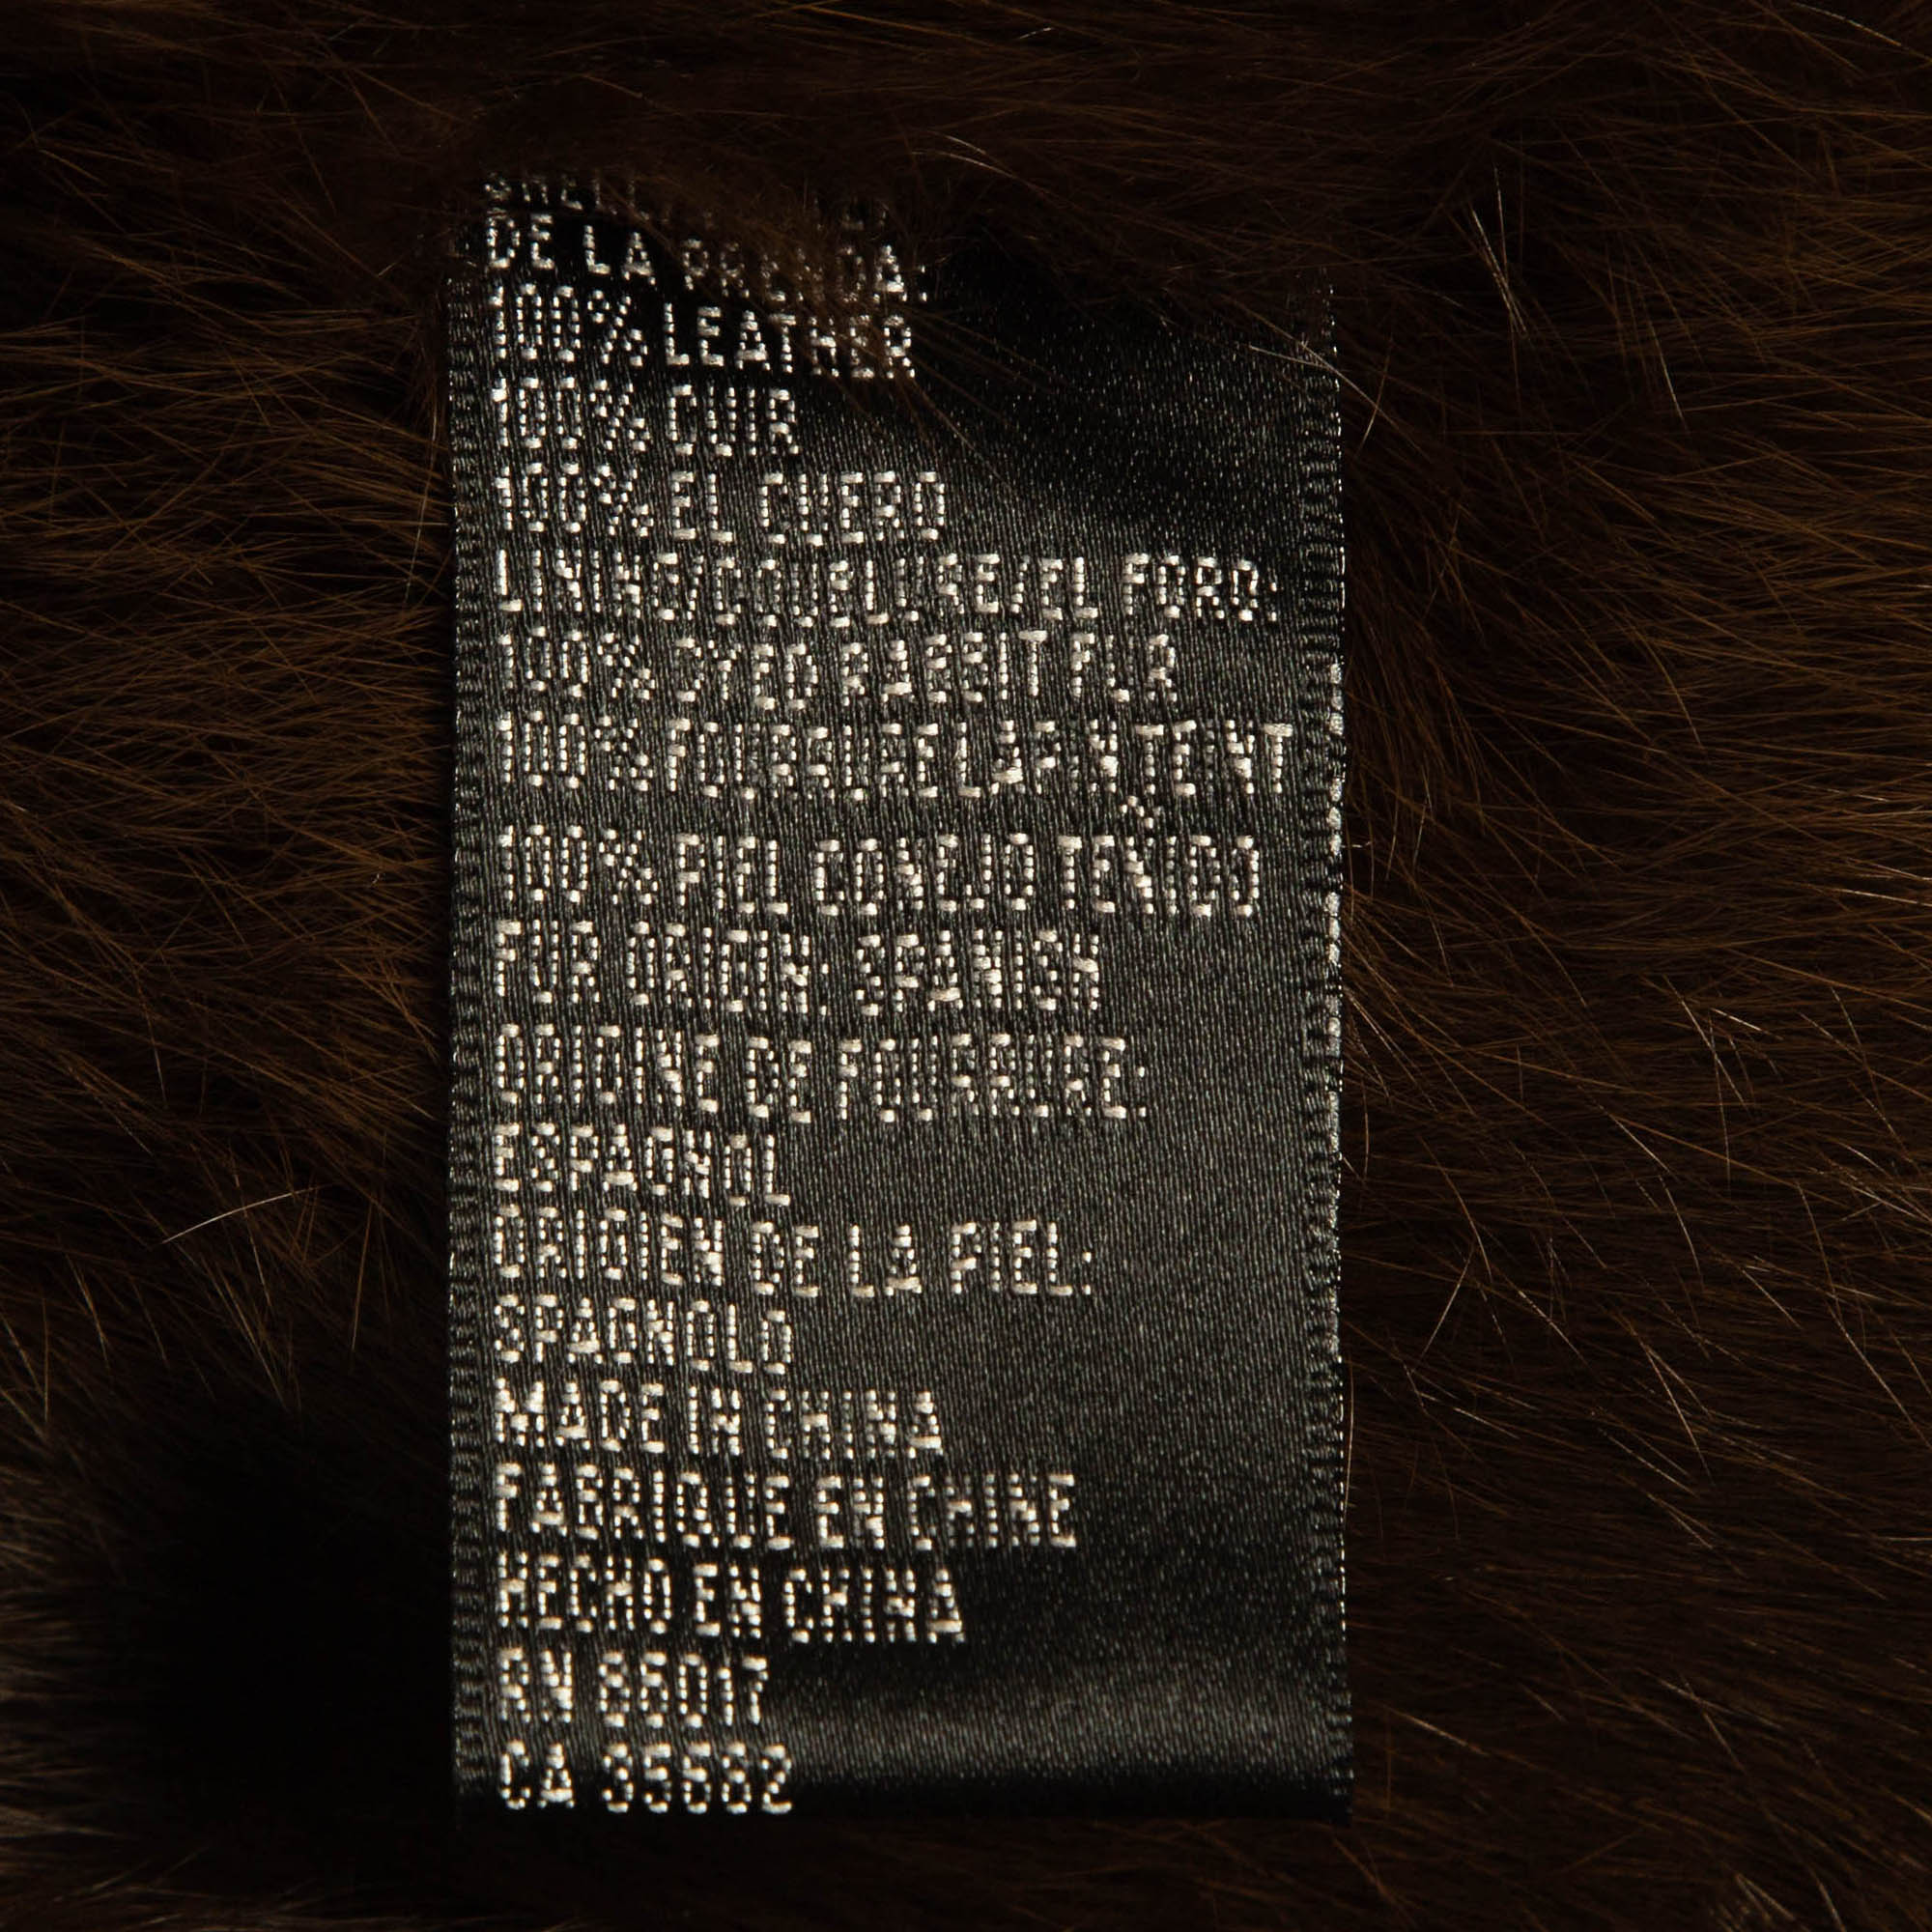 DE LA PRENDA:
100% LEATHER
100% CUIR
100% EL CUERO
LINING/COUELURE/EL FORO:
100% DYED RABBIT FUR
100% FOURRURE LAPIN TEINT
100% PIEL CONEJO TEÑIDO
FUR ORIGIN: SPANISH
ORIGINE DE FOURRURE:
ESPAGNOL
ORIGIEN DE LA PIEL:
SPAGNOLO
MADE IN CHINA
FABRIQUE EN CHINE
HECHO EN CHINA
RN 86017
CA 35562